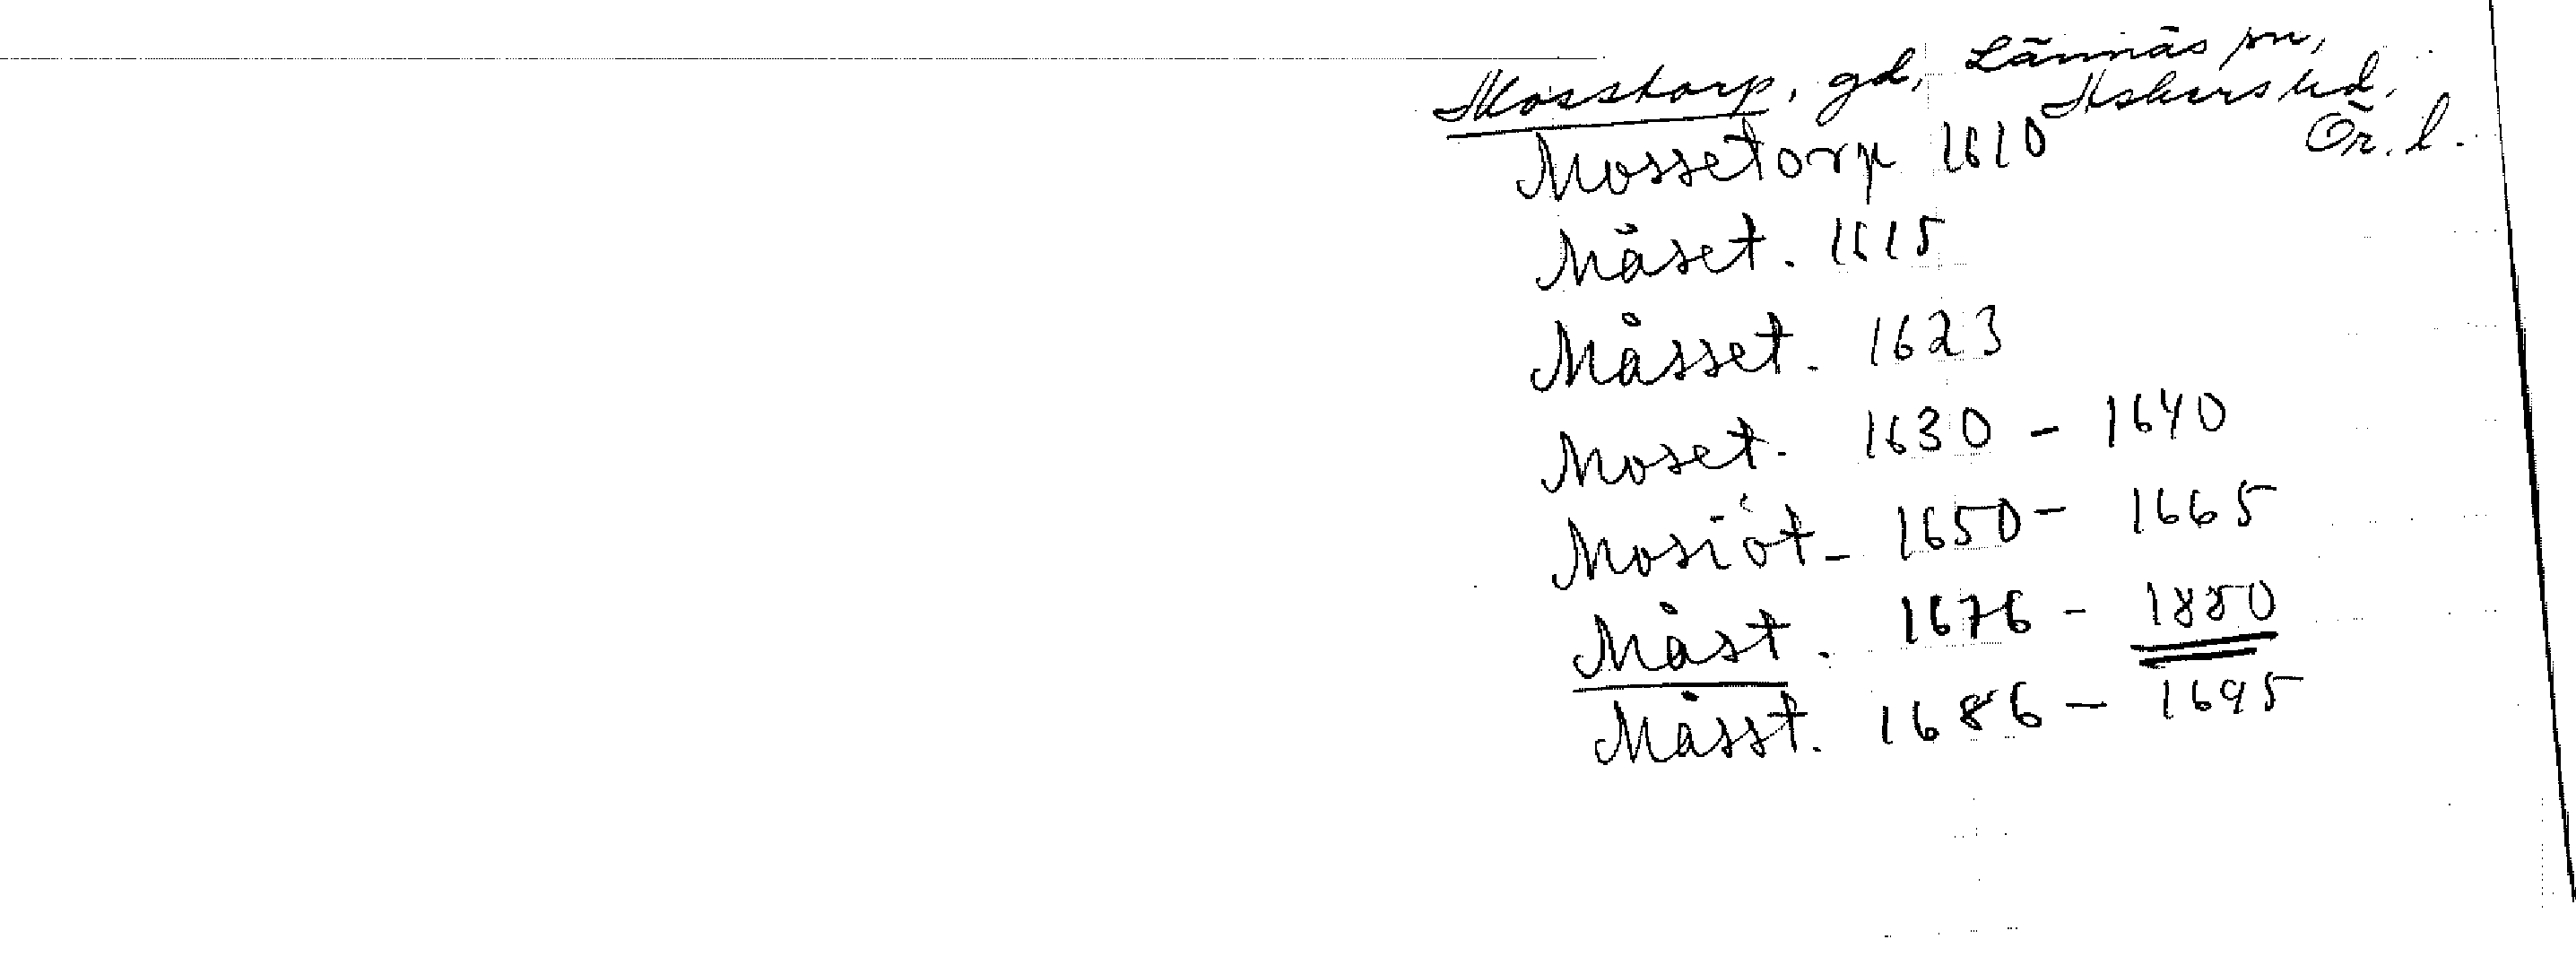 Mosstorp, gd, Lännäs sn,
Askers hd,
Ör. l.
Mossetorp 1610
Måset. 1615
Måsset. 1623
Moset. 1630 - 1640
Mosiöt- 1650 - 1665
Måst. 1676 - 1880
Måsst. 1686 - 1695